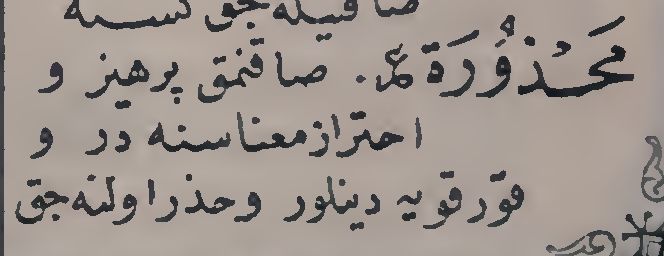 صاقینله‌جق نسنه
مَحْذُورَة ع. صاقنمق پرهیز و
احتراز معناسنه در و
قورقویه دینلور وحذر اولنه‌جق